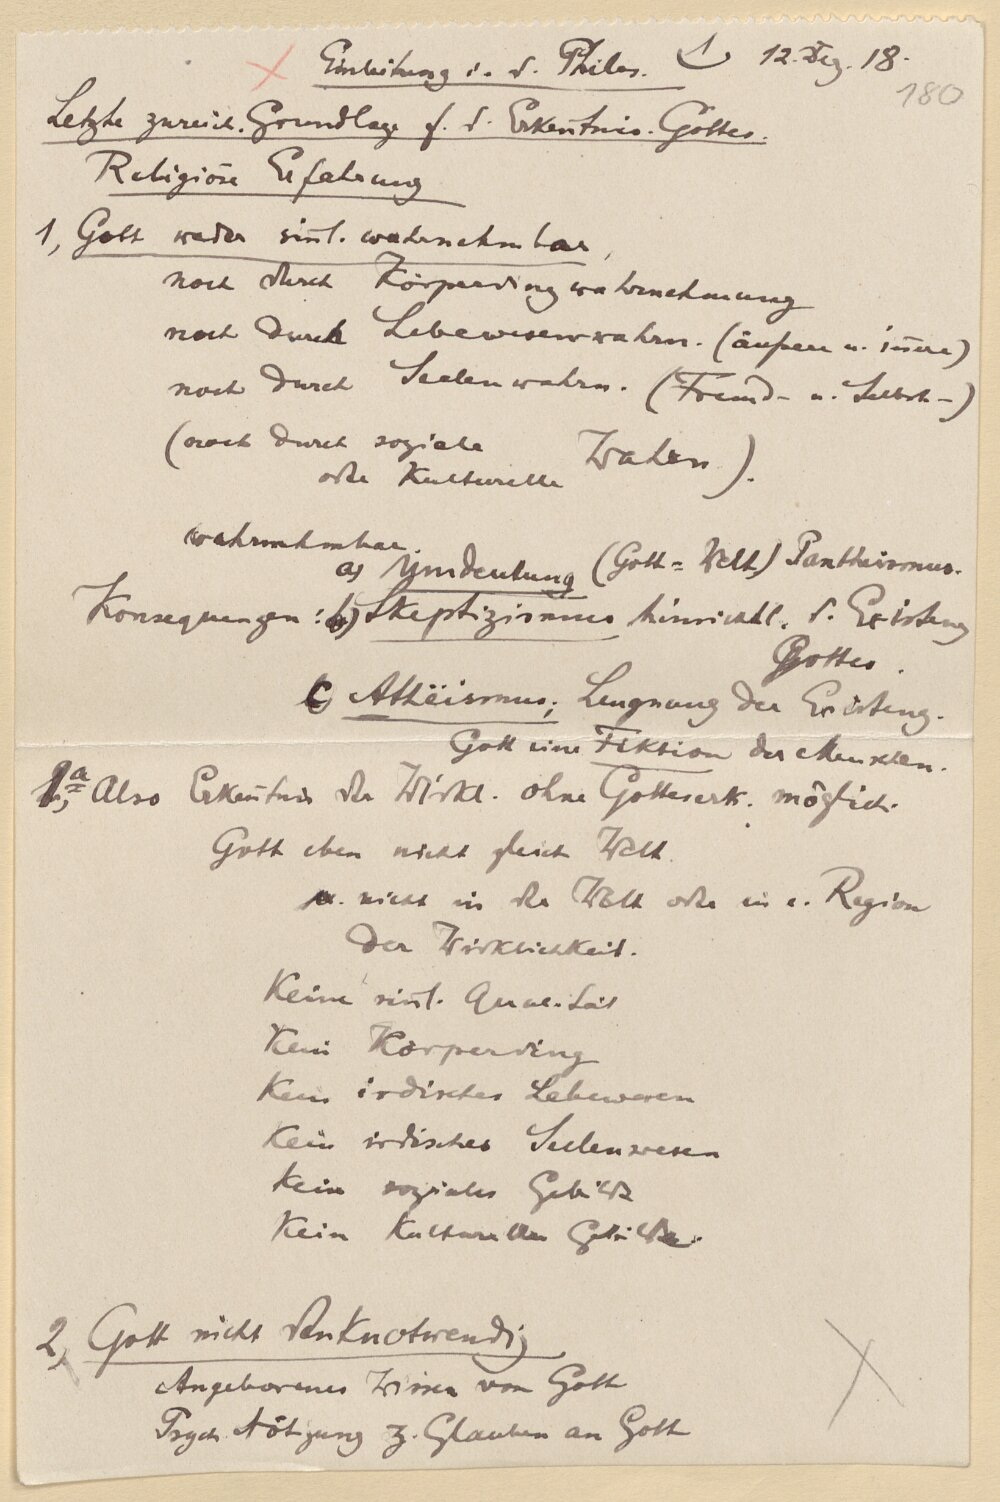 Einleitung i. d. Philos. 1 12. Dez. 18.
180
Letzte zureich. Grundlage f. d. Erkentnis. Gottes.
Religiöse Erfahrung
1, Gott weder sinl. wahrnehmbar,
noch durch Körperdingwahrnehmung
noch durch Lebewesenwahrn. (äußere u. inere)
noch durch Seelenwahrn. (Fremd- u. Selbst-)
(noch durch soziale
oder kulturelle Wahrn.).
wahrnehmbar.
a) Umdeutung (Gott = Welt) Pantheismus.
Konsequenzen: b) Skeptizismus hinsichtl. d. Existenz
Gottes.
c) Athëismus; Leugnung der Existenz.
Gott eine Fiktion der Menschen.
1,a Also Erkentnis der Wirkl. ohne Gotteserk. möglich.
Gott eben nicht gleich Welt.
u. nicht in der Welt oder in e. Region
der Wirklichkeit.
Keine sinl. Qualität
Kein Körperding
Kein irdisches Lebewesen
Kein irdisches Seelenwesen
Kein soziales Gebilde
Kein kulturelles Gebilde.
2, Gott nicht denknotwendig
Angeborenes Wissen von Gott
Psych. Nötigung z. Glauben an Gott